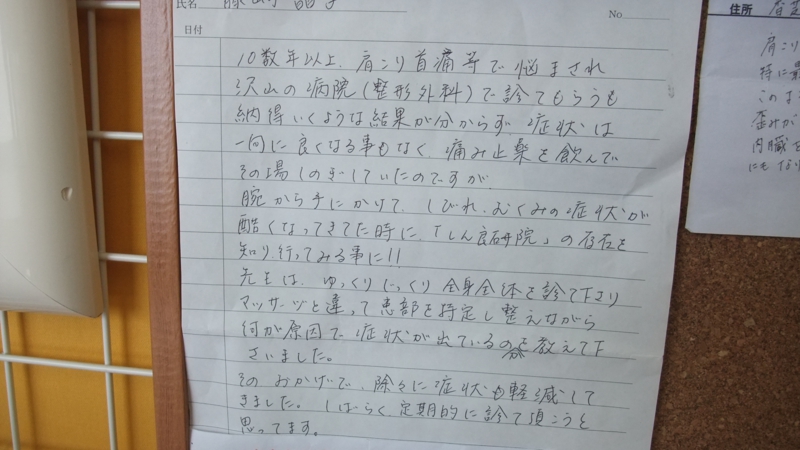 氏名
No
日付
10数年以上、肩こり首痛等で悩まされ
沢山の病院(整形外科)で診てもらうも
納得いくような結果が分からず、症状は
一向に良くなる事もなく、痛み止薬を飲んで
その場しのぎしていたのですが、
腕から手にかけて、しびれ、むくみの症状が
酷くなってきてた時に、「しん良研院」の存在を
知り、行ってみる事に!!
先生は、ゆっくりじっくり全身全体を診て下さり
マッサージと違って患部を特定し整えながら
何が原因で症状が出ているのか教えて下
さいました。
そのおかげで、除々に症状も軽減して
きました。しばらく定期的に診て頂こうと
思ってます。
住所
肩こり
特に最
このま
歪みが
内臓を
にもなり